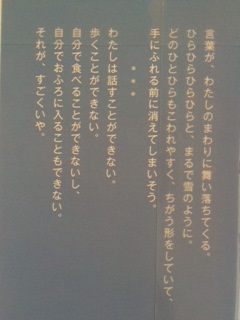 言葉が、わたしのまわりに舞い落ちてくる。
ひらひらひらひらと、まるで雪のように。
どのひとひらもこわれやすく、ちがう形をしていて、
手にふれる前に消えてしまいそう。
***
わたしは話すことができない。
歩くことができない。
自分で食べることができないし、
自分でおふろに入ることもできない。
それが、すごくいや。